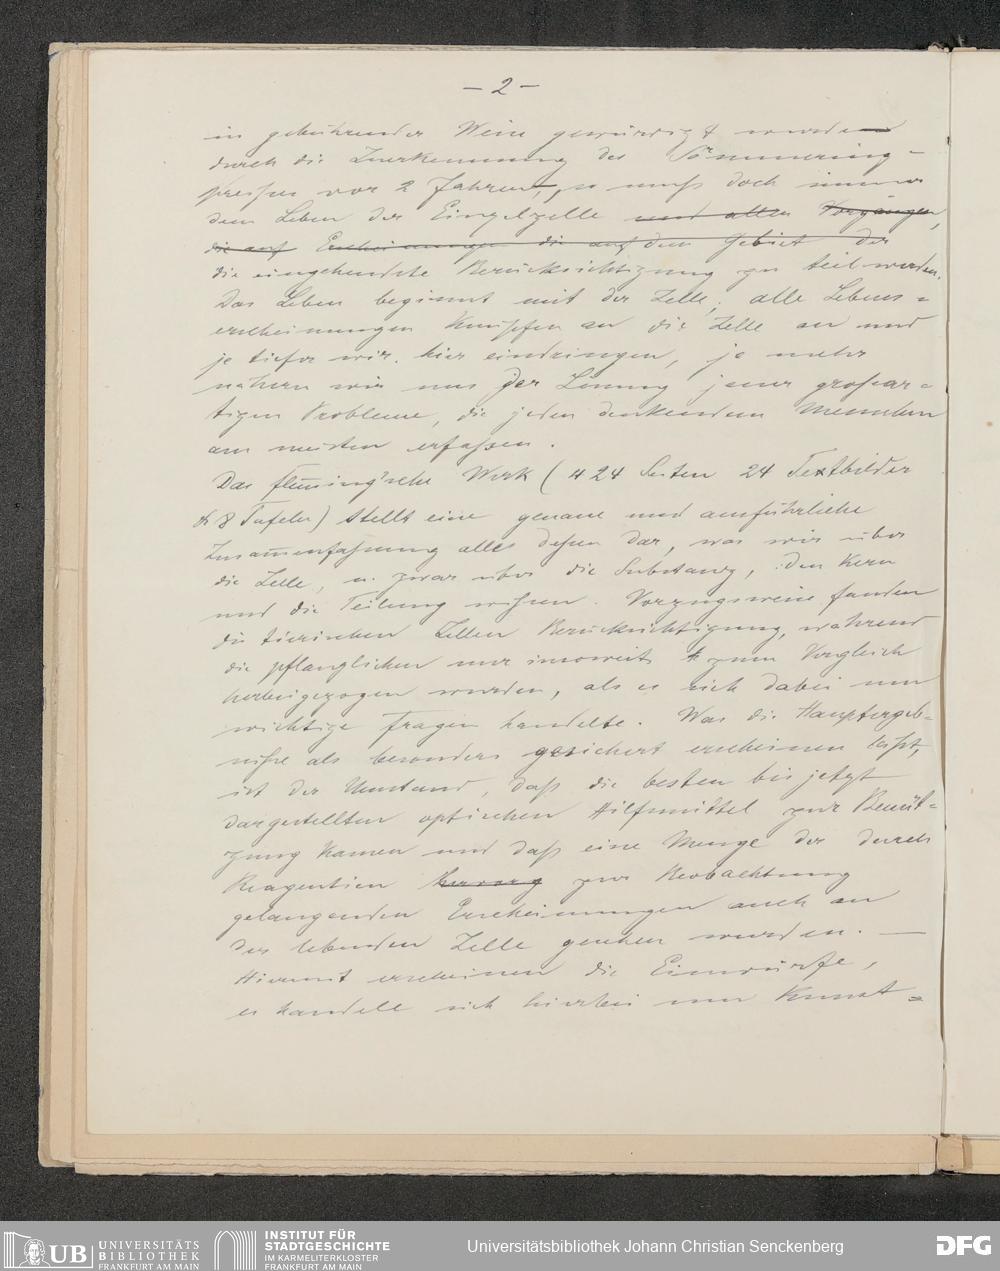 – 2 –
in gebührender Weise gewürdigt wurde
durch die Zuerkennung des Sömmering-
preises vor 2 Jahren, so muss doch immer
dem Leben der Einzelzelle und allen Vorgängen,
die auf Erscheinungen die auf dem Gebiet der
die eingehendste Berücksichtigung zu teil werden.
Das Leben beginnt mit der Zelle, alle Lebens=
erscheinungen knüpfen an die Zelle an und
je tiefer wir hier eindringen, je mehr
nähern wir uns der Lösung jener großar=
tigen Probleme, die jeden denkenden Menschen
am meisten erfassen.
Das Fleming'sche Werk (424 Seiten 24 Textbilder
& 8 Tafeln) stellt eine genaue und ausführliche
Zusam̄enfaßung alles deßen dar, was wir über
die Zelle, u. zwar über die Substanz, den Kern
und die Teilung wißen. Vorzugsweise fanden
die tierischen Zellen Berücksichtigung, während
die pflanzlichen nur insoweit zum Vergleich
herbeigezogen wurden, als es sich dabei um
wichtige Fragen handelte. Was die Hauptergeb=
niße als besonders gesichert erscheinen läßt,
ist der Umstand, daß die besten bis jetzt
dargestellten optischen Hilfsmittel zur Benüt=
zung kamen und daß eine Menge der durch
Reagentien hervorg zur Beobachtung
gelangenden Erscheinungen auch an
der lebenden Zelle gesehen wurden. —
Hiermit erscheinen die Einwürfe,
es handele sich hierbei um Kunst=
UB UNIVERSITÄTS
BIBLIOTHEK
FRANKFURT AM MAIN
INSTITUT FÜR
STADTGESCHICHTE
IM KARMELITERKLOSTER
FRANKFURT AM MAIN
Universitätsbibliothek Johann Christian Senckenberg
DFG